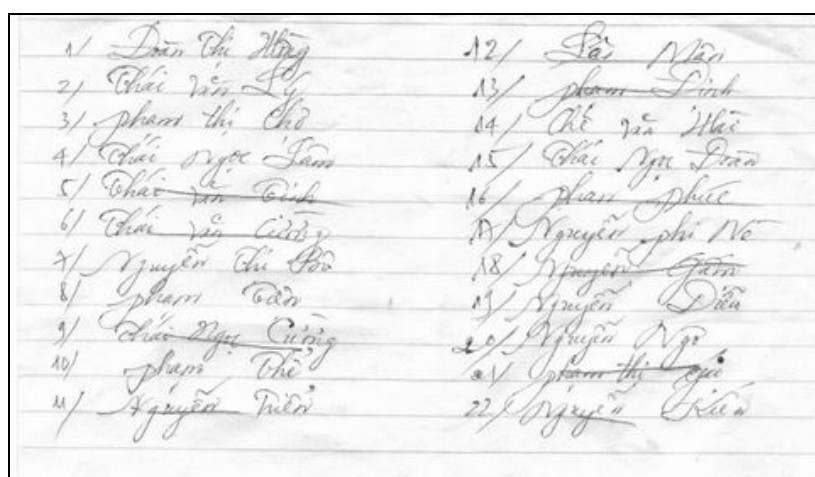 1/ Đoàn Thị Hồng
2/ Thái Văn Lý
3/ phạm thị Chờ
4/ Thái Ngọc Lâm
5/ Thái Văn Tính
6/ Thái Văn Cường
7/ Nguyễn Thị
8/ phạm Tiến
9/ Thái Ngọc Cường
10/ phạm Thể
11/ Nguyễn Triển
12/ Mân
13/ phạm Đinh
14/ Chế Văn Hải
15/ Thái Ngọc Đoàn
16/ phạm phúc
17/ Nguyễn phi Nô
18/ Nguyễn Gấm
19/ Nguyễn Diễu
20/ Nguyễn Ngô
21/ phạm thị
22/ Nguyễn Kiến